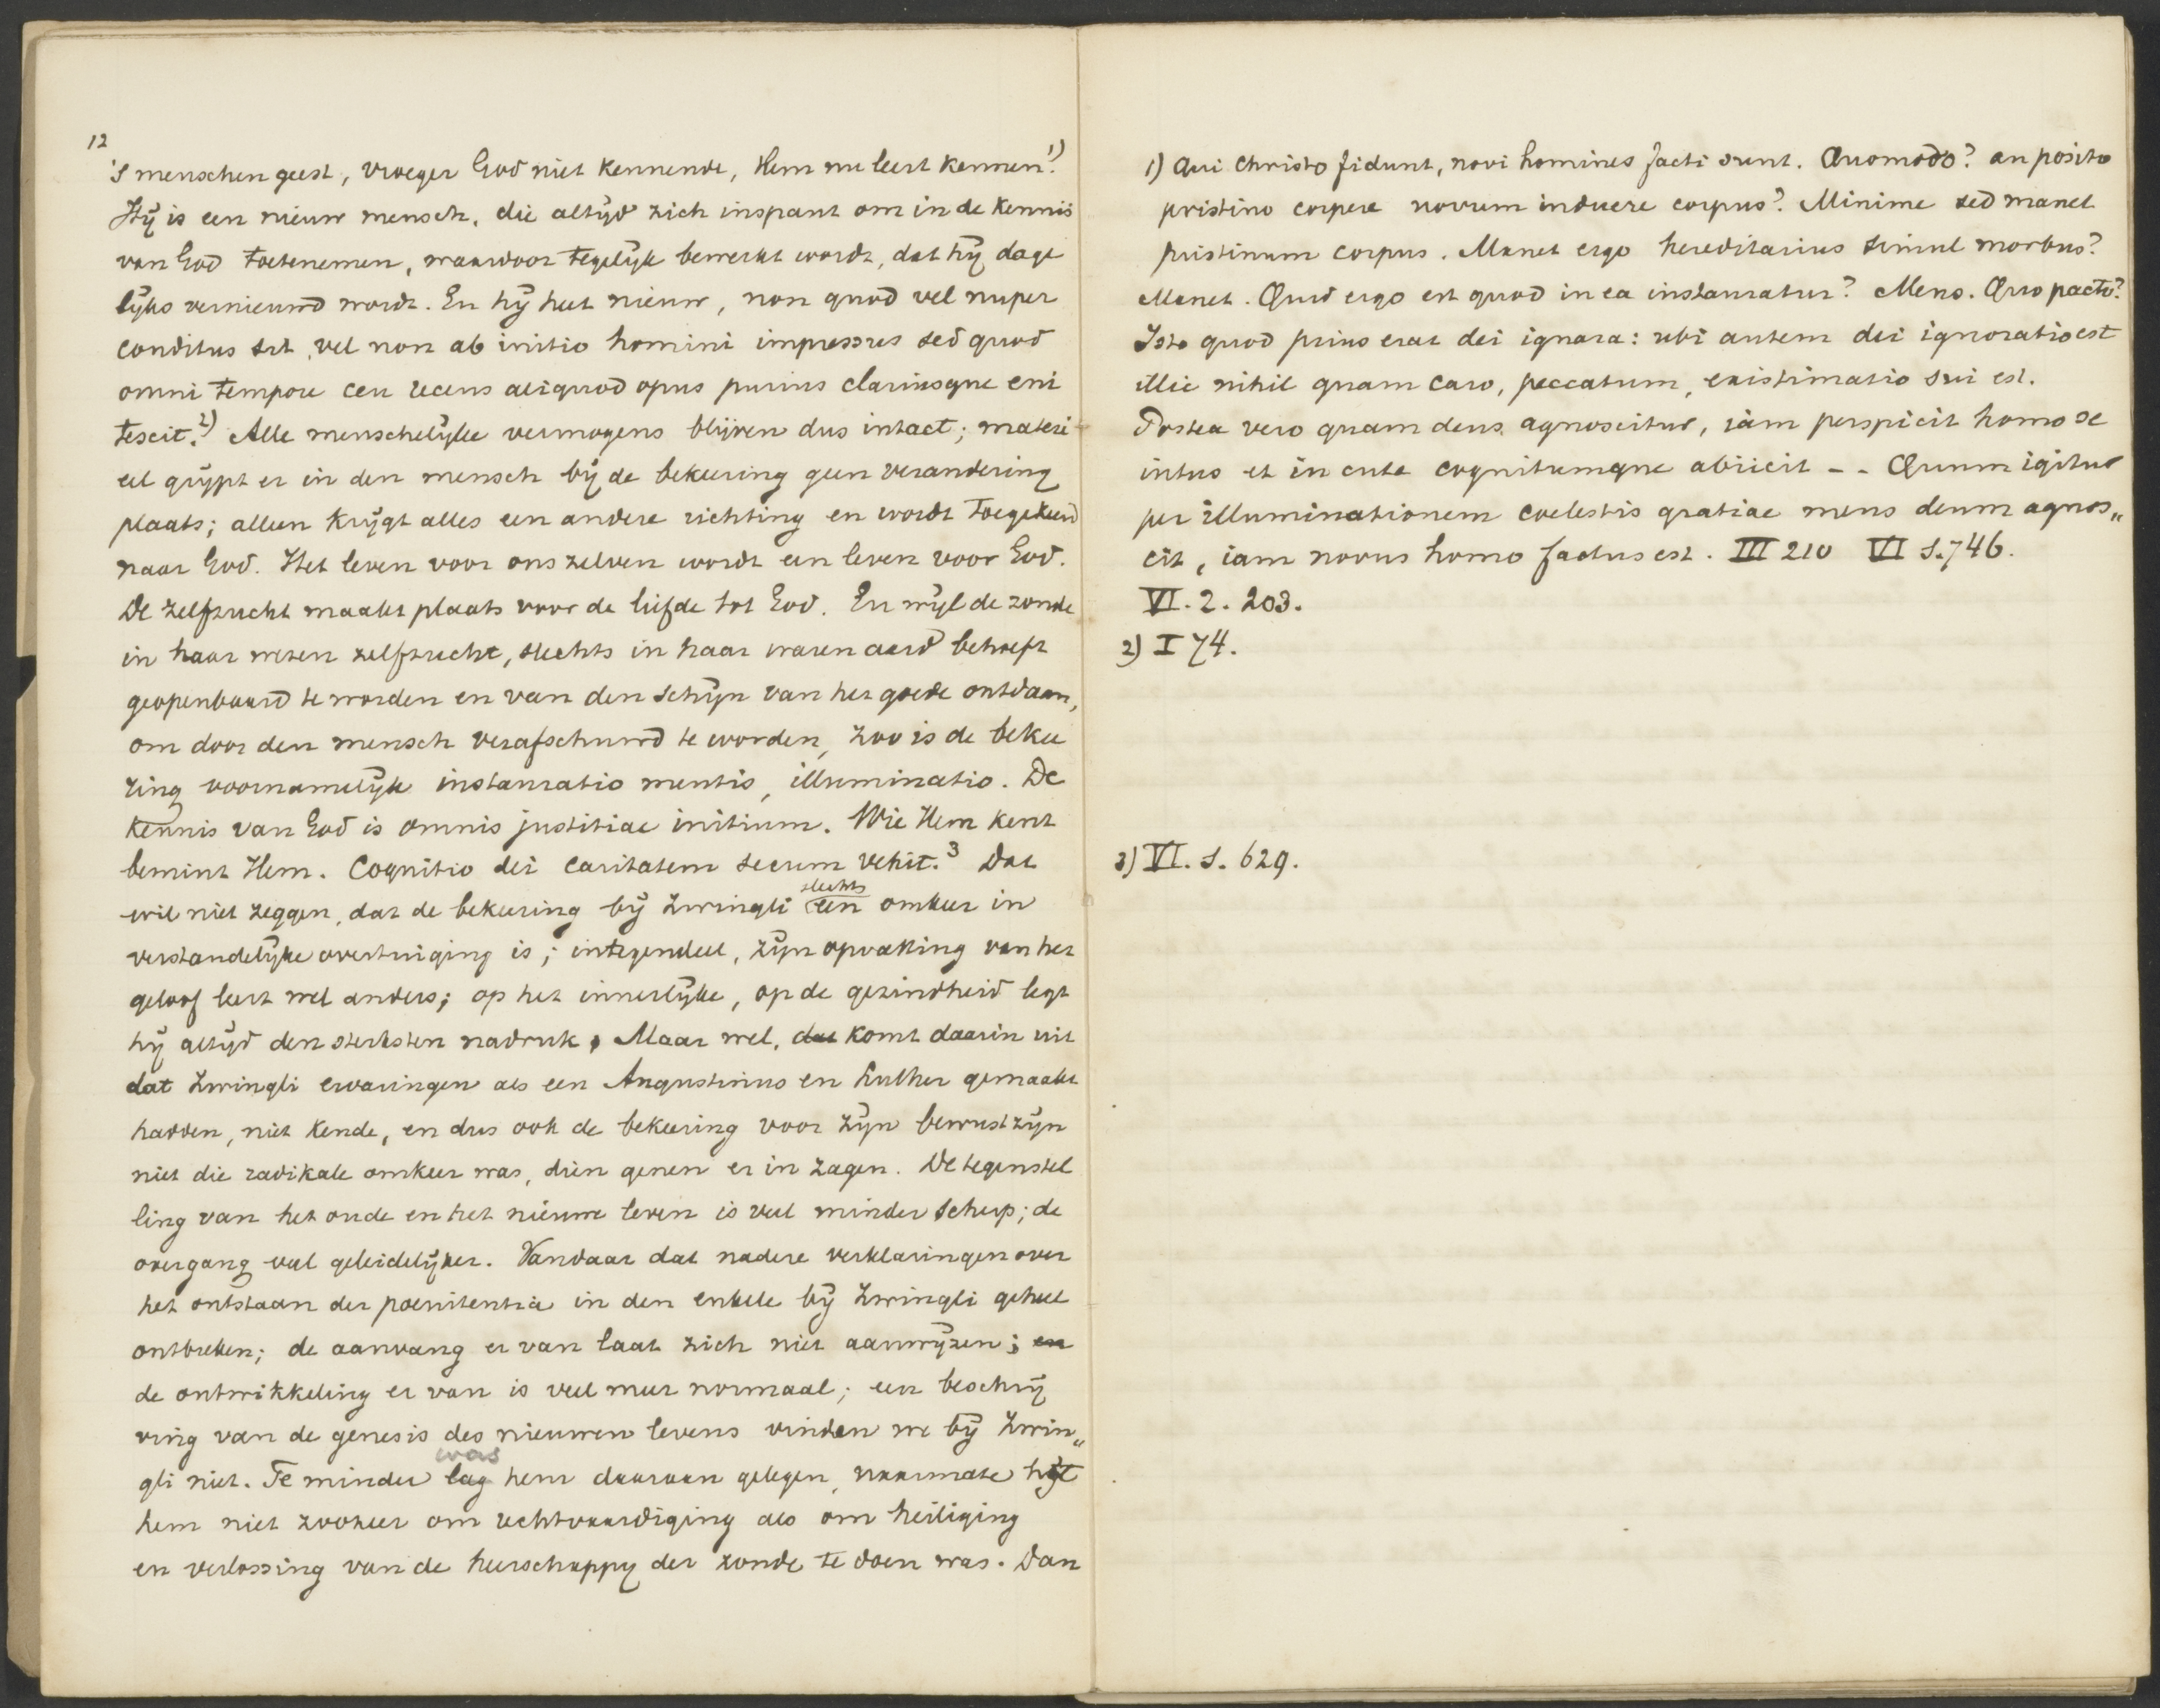 12
's menschen geest, vroeger God niet kennende, Hem nu leert kennen.1)
Hij is een nieuw mensch, die altijd zich inspant om in de kennis
van God toetenemen, waardoor tegelijk bewerkt wordt, dat hij dage
lijks vernieuwd wordt. En hij heet nieuw, non quod vel nuper
conditus sit, vel non ab initio homini impressus sed quod
omni tempore ceu recens aliquod opus purius clariusque eni
tescit.2) Alle menschelijke vermogens blijven dus intact; materi
eel grijpt er in den mensch bij de bekeering geen verandering
plaats; alleen krijgt alles een andere richting en wordt toegekeerd
naar God. Het leven voor ons zelven wordt een leven voor God.
De zelfzucht maakt plaats voor de liefde tot God. En wijl de zonde
in haar wezen zelfzucht, slechts in haar waren aard behoeft
geopenbaard te worden en van den schijn van het goede ontdaan,
om door den mensch verafschuwd te worden, zoo is de bekee
ring voornamelijk instauratio mentis, illuminatio. De
kennis van God is omnis justitiae initium. Wie Hem kent
bemint Hem. Cognitio dei caritatem secum vehit.3 Dat
wil niet zeggen, dat de bekeering bij Zwingli slechts een omkeer in
verstandelijke overtuiging is; integendeel, zijn opvatting van het
geloof leert wel anders; op het innerlijke, op de gezindheid legt
hij altijd den sterksten nadruk. Maar wel, dat komt daarin uit
dat Zwingli ervaringen als een Augustinus en Luther gemaakt
hadden, niet kende, en dus ook de bekeering voor zijn bewustzijn
niet die radikale omkeer was, dien genen er in zagen. De tegenstel
ling van het oude en het nieuwe leven is veel minder scherp; de
overgang veel geleidelijker. Vandaar dat nadere verklaringen over
het ontstaan der poenitentia in den enkele bij Zwingli geheel
ontbreken; de aanvang er van laat zich niet aanwijzen; en
de ontwikkeling er van is veel meer normaal; een beschrij
ving van de genesis des nieuwen levens vinden we bij Zwin„
gli niet. Te minder lag was hem daaraan gelegen, naarmate het
hem niet zoozeer om rechtvaardiging als om heiliging
en verlossing van de heerschappy der zonde te doen was. Dan
1) Qui Christo fidunt, novi homines facti sunt. Quomodo? an posito
pristino corpore novum induere corpus? Minime sed manet
pristinum corpus. Manet ergo hereditarius simul morbus?
Manet. Quid ergo est quod in ea instauratur? Mens. Quo pacto?
Isto quod prius erat dei ignara: ubi autem dei ignoratio est
illic nihil quam caro, peccatum, existimatio sui est.
Postea vero quam deus agnoscitur, iam perspicit homo se
intus et in cute cognitumque abiicit - - Quum igitur
per illuminationem coelestis gratiae mens deum agnos„
cit, iam novus homo factus est. III 210 VI 1.746.
VI. 2. 203.
2) I 74.
3) VI. 1. 629.